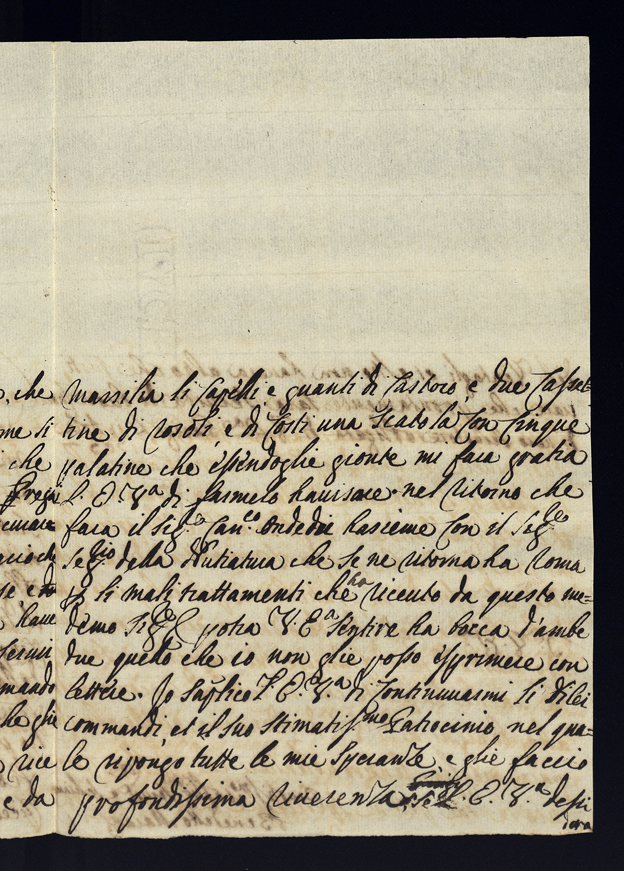 , che marsilia li Capelli, e guanti di Castoro, e due Casset=
me si tine di rosoli, e di Costi una scatola Con Cinque
che palatine che essendoglie gionte mi fara gratia
prega L. E. V.a di farmelo havisare nel ritorno che
fara il sig.r Can.co Ondedei hasieme Con il sig.re
Seg.rio della Nutiatura che se ne ritorna ha roma
se li mali trattamenti che ha riceuto da questo me=
haue demo sig.re potra V. E.a sentire ha bocca d'ambe
due quello che io non glie posso esprimere con
mando lettere. Io suplico L. E. V.a di Continuuarmi li di lei
che glie commandi, et il suo stimatiss.mo Patrocinio nel qua=
rice le ripongo tutte le mie speranze, e glie faccio
e da profondissima riverenza L. E. V.a desi
dera